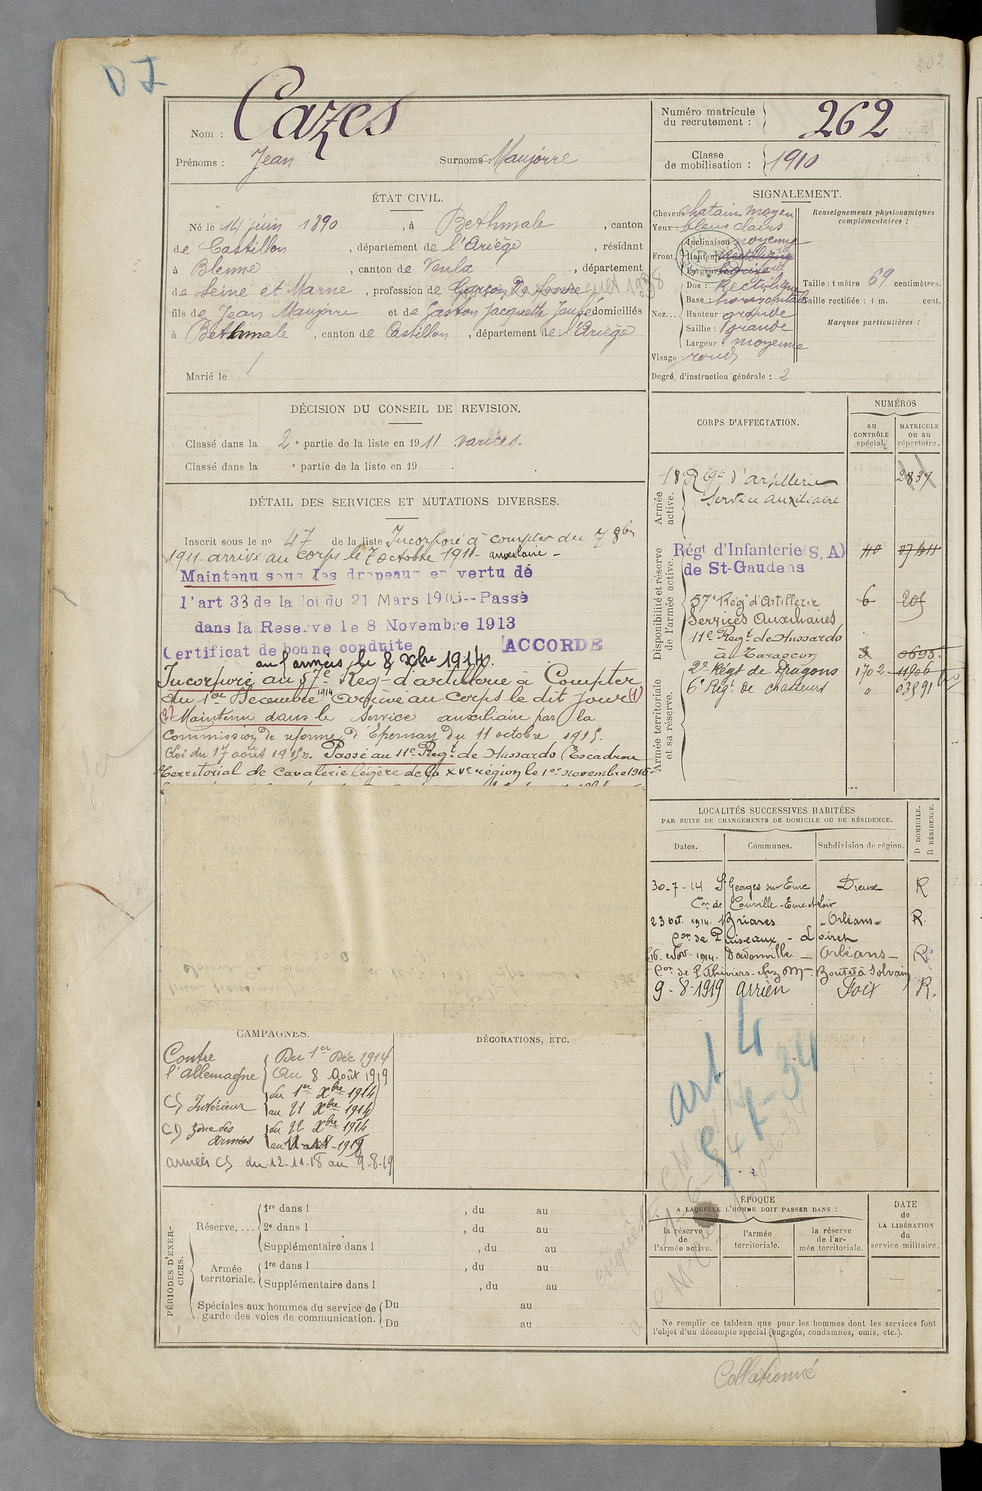 DJ
Nom : Cazes
Prénoms : Jean Surnoms : Maujorre
Numéro matricule du recrutement : 262
Classe de mobilisation : 1910
ÉTAT CIVIL.
Né le 14 juin 1890, à Bethmale, canton
de Castillon, département de l'Ariège, résidant
à Blenne, canton de, département
de Seine et Marne, profession de Garçon
fils de Jean Maujorre et de Jacquette domiciliés
à Bethmale, canton de Castillon, département de l'Ariège
Marié le
SIGNALEMENT.
Cheveux chatains moyen
Yeux bleus clairs
Front Inclinaison moyenne
Hauteur
Largeur
Nez Dos : Rectiligne
Base : horizontale
Hauteur grande
Saillie : grande
Largeur : moyenne
Visage rond
Renseignements physionomiques complémentaires :
Taille : 1 mètre 69 centimètres.
Taille rectifiée : 1 m. cent.
Marques particulières :
Degré d'instruction générale : 2
DÉCISION DU CONSEIL DE REVISION.
Classé dans la 2e partie de la liste en 1911 varices.
Classé dans la e partie de la liste en 19 .
DÉTAIL DES SERVICES ET MUTATIONS DIVERSES.
Inscrit sous le no 47 de la liste Incorporé à compter du 7 8bre
1911 arrivé au corps le 7 octobre 1911 - auxiliaire -
Maintenu sous les drapeaux en vertu de
l'art 33 de la loi du 21 Mars 1905--Passé
dans la Reserve le 8 Novembre 1913
Certificat de bonne conduite ACCORDE
aux armées le 8 xbre 1914.
Incorporé au 57e Reg-d'artillerie à Compter
du 1er Décembre 1914 arrivé au corps le dit jour (1)
Maintenu dans le Service auxiliaire par la
Commission de reforme d'Epernay du 11 octobre 1915.
Loi du 17 août 1915. Passé au 11e Regt de Hussards (Escadron
territorial de Cavalerie légère de la XVe région le 1er novembre 1916
CORPS D'AFFECTATION.
NUMÉROS
au CONTRÔLE spécial.
MATRICULE ou au répertoire.
Armée active.
18e Rgt d'artillerie 2837
Service auxiliaire
Disponibilité et réserve de l'armée active.
Régt d'Infanterie (S. A)
de St-Gaudens
57e Régt d'Artillerie 6
Services Auxiliaires
11e Regt de Hussards
à Tarascon
Armée territoriale et sa réserve.
2e Régt de Dragons 1702
6e Rgt de chasseurs
LOCALITÉS SUCCESSIVES HABITÉES
PAR SUITE DE CHANGEMENTS DE DOMICILE OU DE RÉSIDENCE.
Dates. Communes. Subdivision de région. D DOMICILE. R RÉSIDENCE.
30-7-14 St Georges sur Eure Dreux R
Con de Courville - Eure et Loir
23 oct. 1914 Briares - Orléans - R.
Con de Puiseaux - Loiret
16 Nov. 1914 Dadonville - Orléans - R
Con de Pithiviers
9-8-1919 Arrien Foix R.
art 4
CAMPAGNES.
Contre l'allemagne Du 1er Déc 1914
au 8 Août 1919
CS Intérieur du 1er Xbre 1914
au 21 Xbre 1914
CS Zone des armées du 22 Xbre 1914
armées CS du 12-11-18 au 9-8-19
DÉCORATIONS, ETC.
PÉRIODES D'EXERCICES.
Réserve.... 1re dans l , du au
2e dans l , du au
Supplémentaire dans l , du au
Armée territoriale. 1re dans l , du au
Supplémentaire dans l , du au
Spéciales aux hommes du service de garde des voies de communication. Du au
Du au
ÉPOQUE
A LAQUELLE L'HOMME DOIT PASSER DANS :
la réserve de l'armée active.
l'armée territoriale.
la réserve de l'armée territoriale.
DATE de LA LIBÉRATION du service militaire.
Ne remplir ce tableau que pour les hommes dont les services font
l'objet d'un décompte spécial (engagés, condamnés, omis, etc.).
Collationné